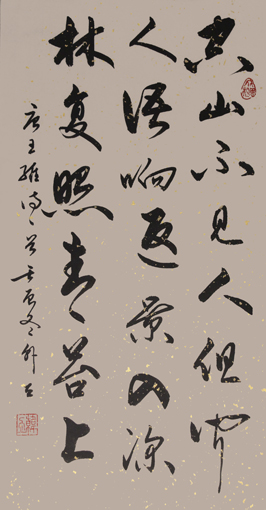 空山不见人但闻
人语响返景入深
林复照青苔上
唐王维诗一首壬辰冬